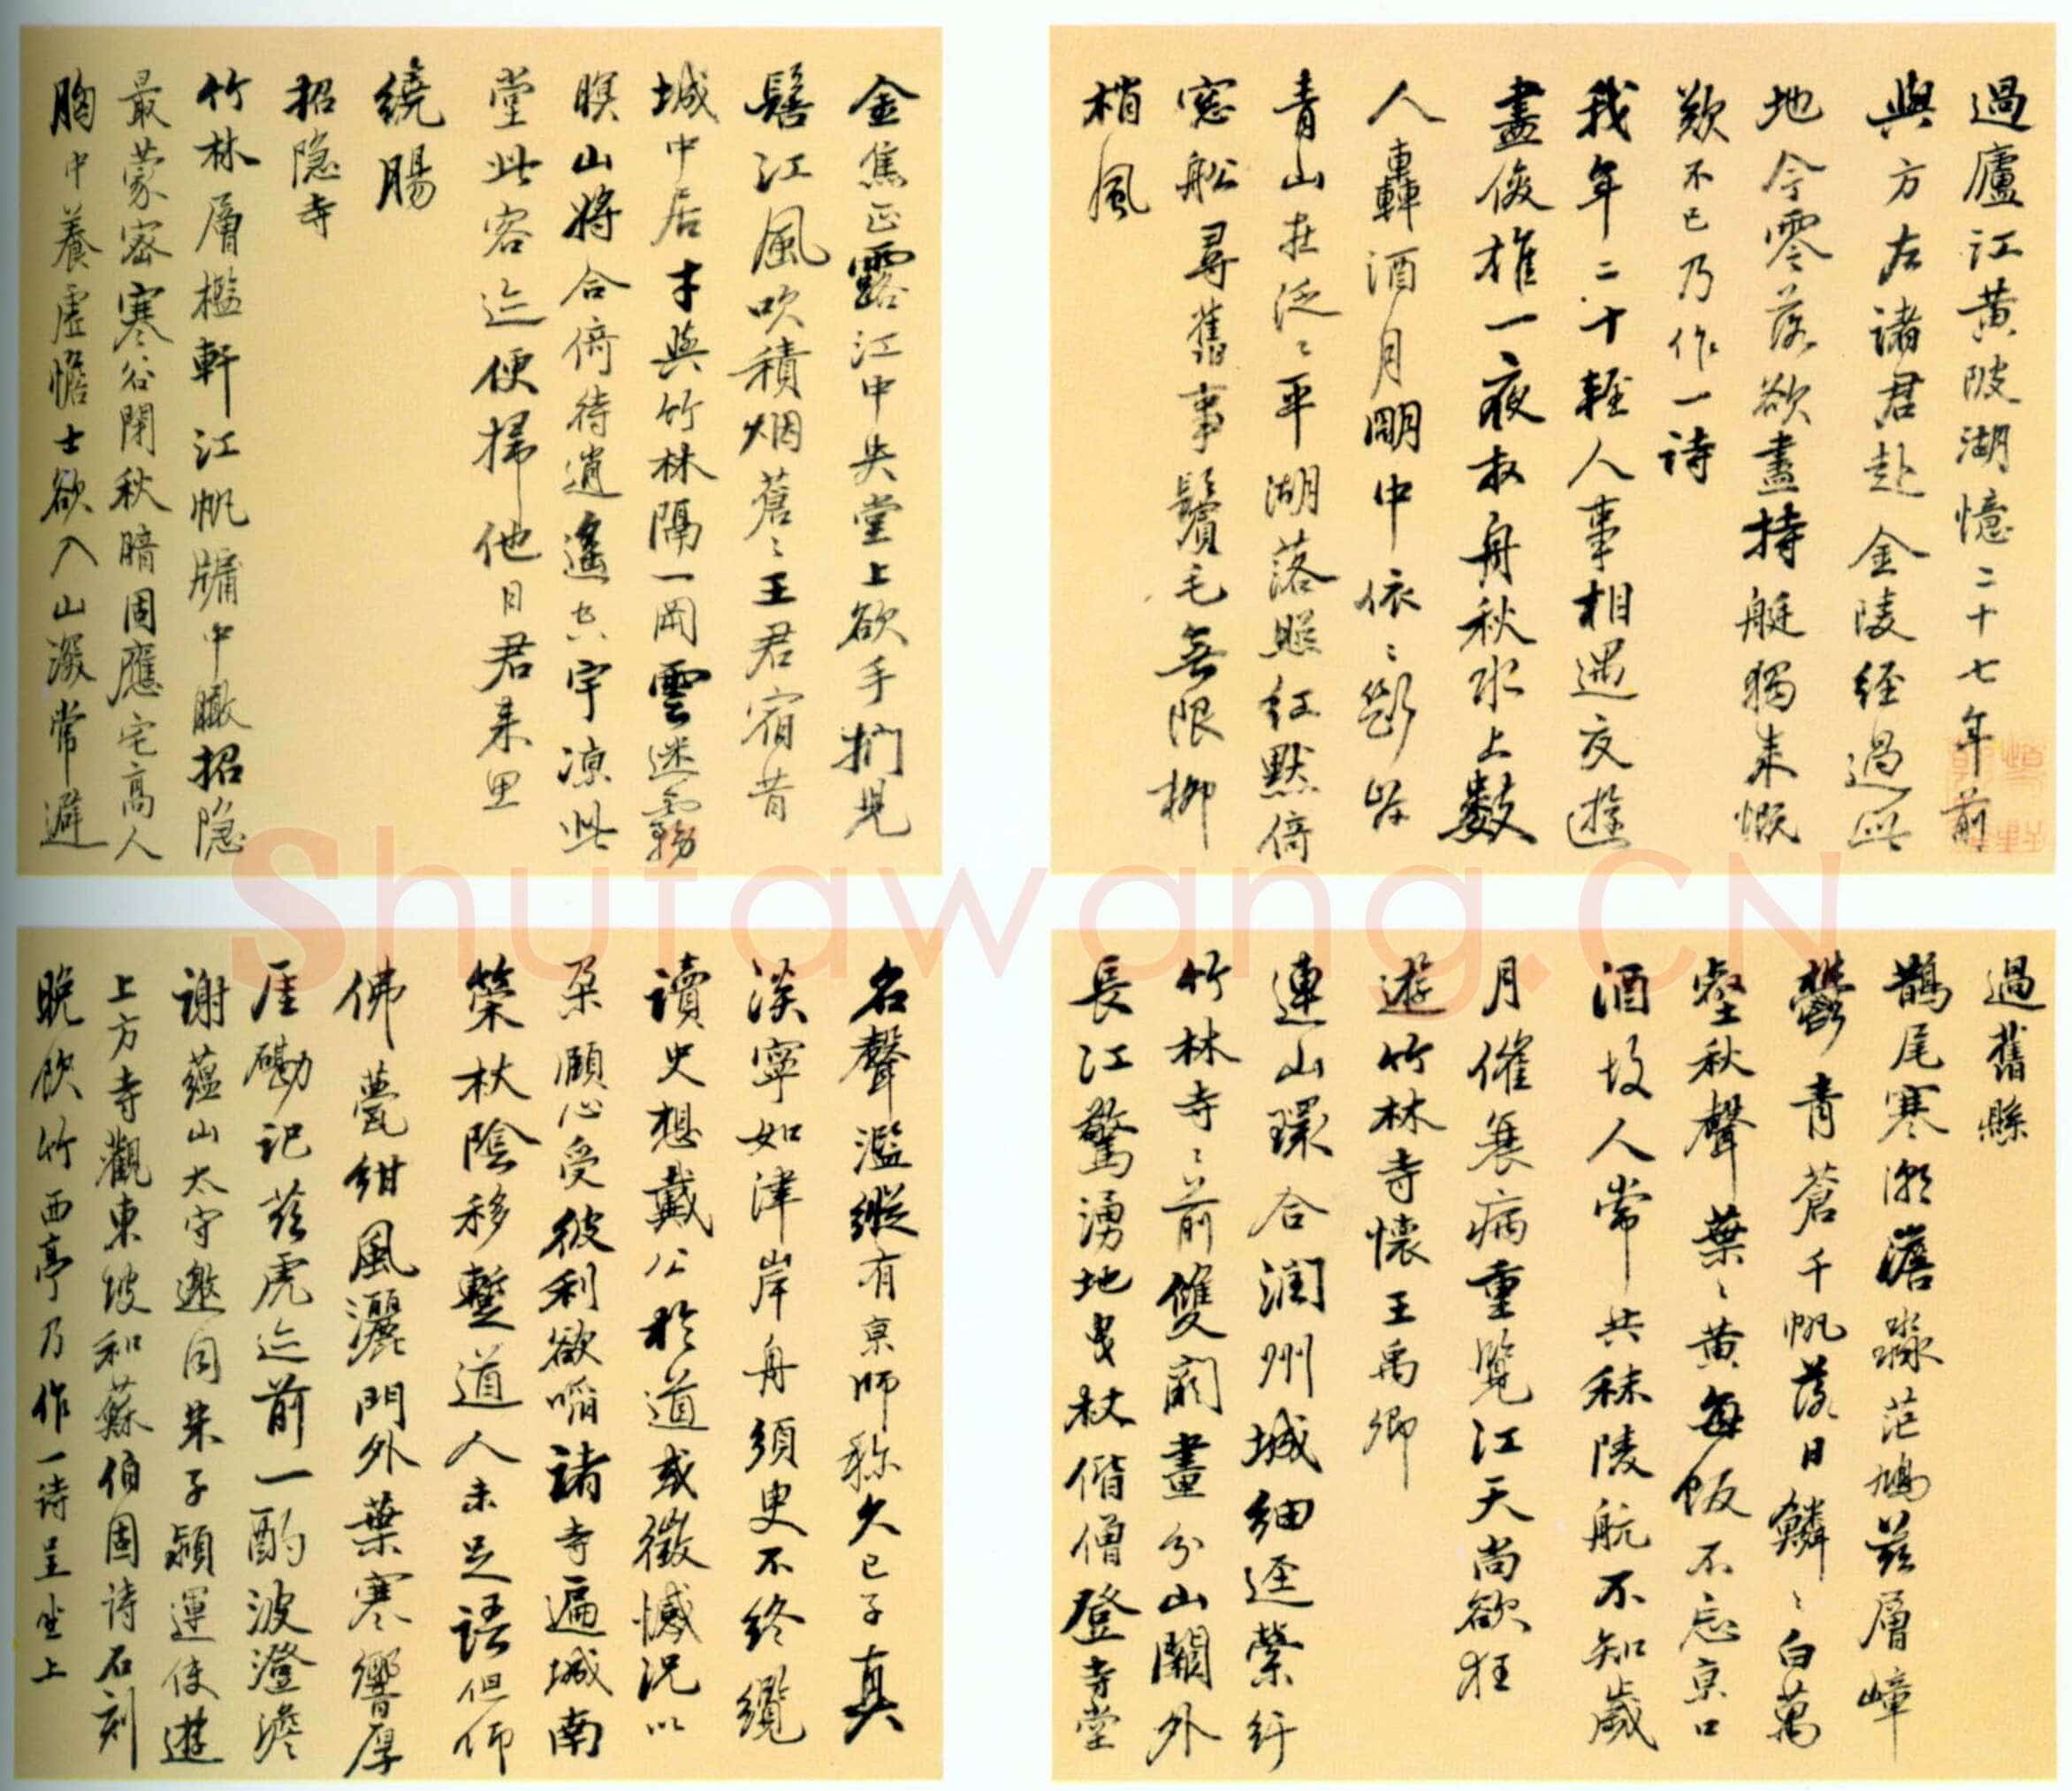 過廬江黃陂湖憶二十七年前
與方左諸君赴金陵經過此
地今零落欲盡持艇獨來慨
歎不已乃作一詩
我年二十輕人事相遇交遊
盡俊雄一夜放舟秋水上數
人轟酒月明中依〻斷岸
青山在泛〻平湖落照紅默倚
窓船尋舊事鬢毛無限柳
梢風
過舊縣
鵲尾寒潮澹淼茫鳩茲層嶂
鬱青蒼千帆落日鱗〻白萬
壑秋聲葉〻黃每飯不忘京口
酒故人常共秣陵航不知歲
月催衰病重覽江天尚欲狂
遊竹林寺懷王禹卿
連山環合潤州城細逕縈紆
竹林寺〻前雙闕畫分山闕外
長江驚湧地曳杖偕僧登寺堂
金焦正露江中央堂上欲手捫兒
髻江風吹積烟蒼〻王君宿昔
城中居才與竹林隔一岡雲迷霧
暝山將合倚待逍遙六宇凉此
堂此客迹便掃他日君来里
繞腸
招隐寺
竹林層檻軒江帆牖中瞰招隐
最蒙密寒谷閉秋暗固應宅高人
胸中養虛憺士欲入山深常避
名聲濫縱有京師称久已子真
淡寧如津岸舟須臾不終纜
讀史想戴公於道或微憾況以
朶願心受彼利欲啗諸寺遍城南
榮杖陰移蹔道人未足語但仰
佛甍紺風灑門外葉寒響厚
厓磡記茲虎迹前一酌波澄澹
謝蘊山太守邀同朱子潁運使遊
上方寺觀東坡和蘇伯固詩石刻
晚飲竹西亭乃作一詩呈坐上
Shufawang.CN